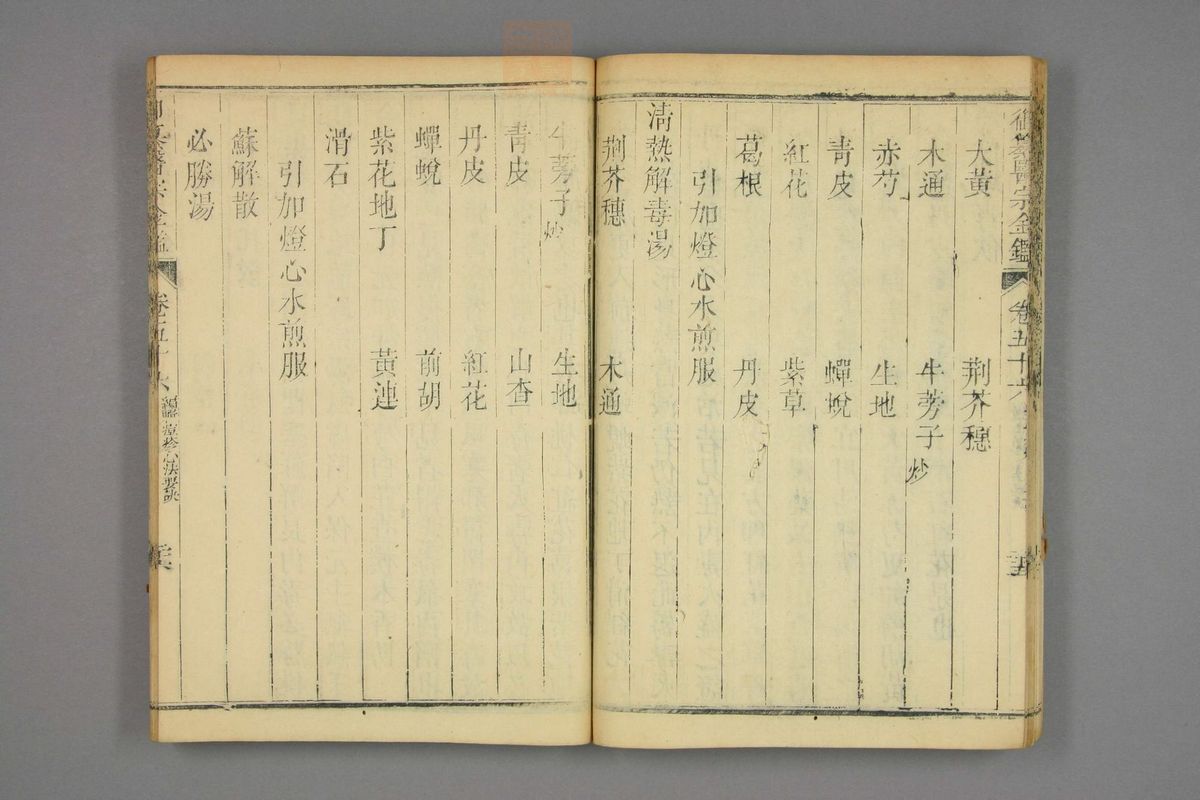 御纂醫宗金鑑 卷五十六
大黃 荆芥穗
木通 牛蒡子炒
赤芍 生地
靑皮 蟬蛻
紅花 紫草
葛根 丹皮
引加燈心水煎服
淸熱解毒湯
荆芥穗 木通
牛蒡子炒 生地
靑皮 山查
丹皮 紅花
蟬蛻 前胡
紫花地丁 黃連
滑石
引加燈心水煎服
蘇解散
必勝湯
醫宗金鑑 卷五十六 痘疹心法要訣